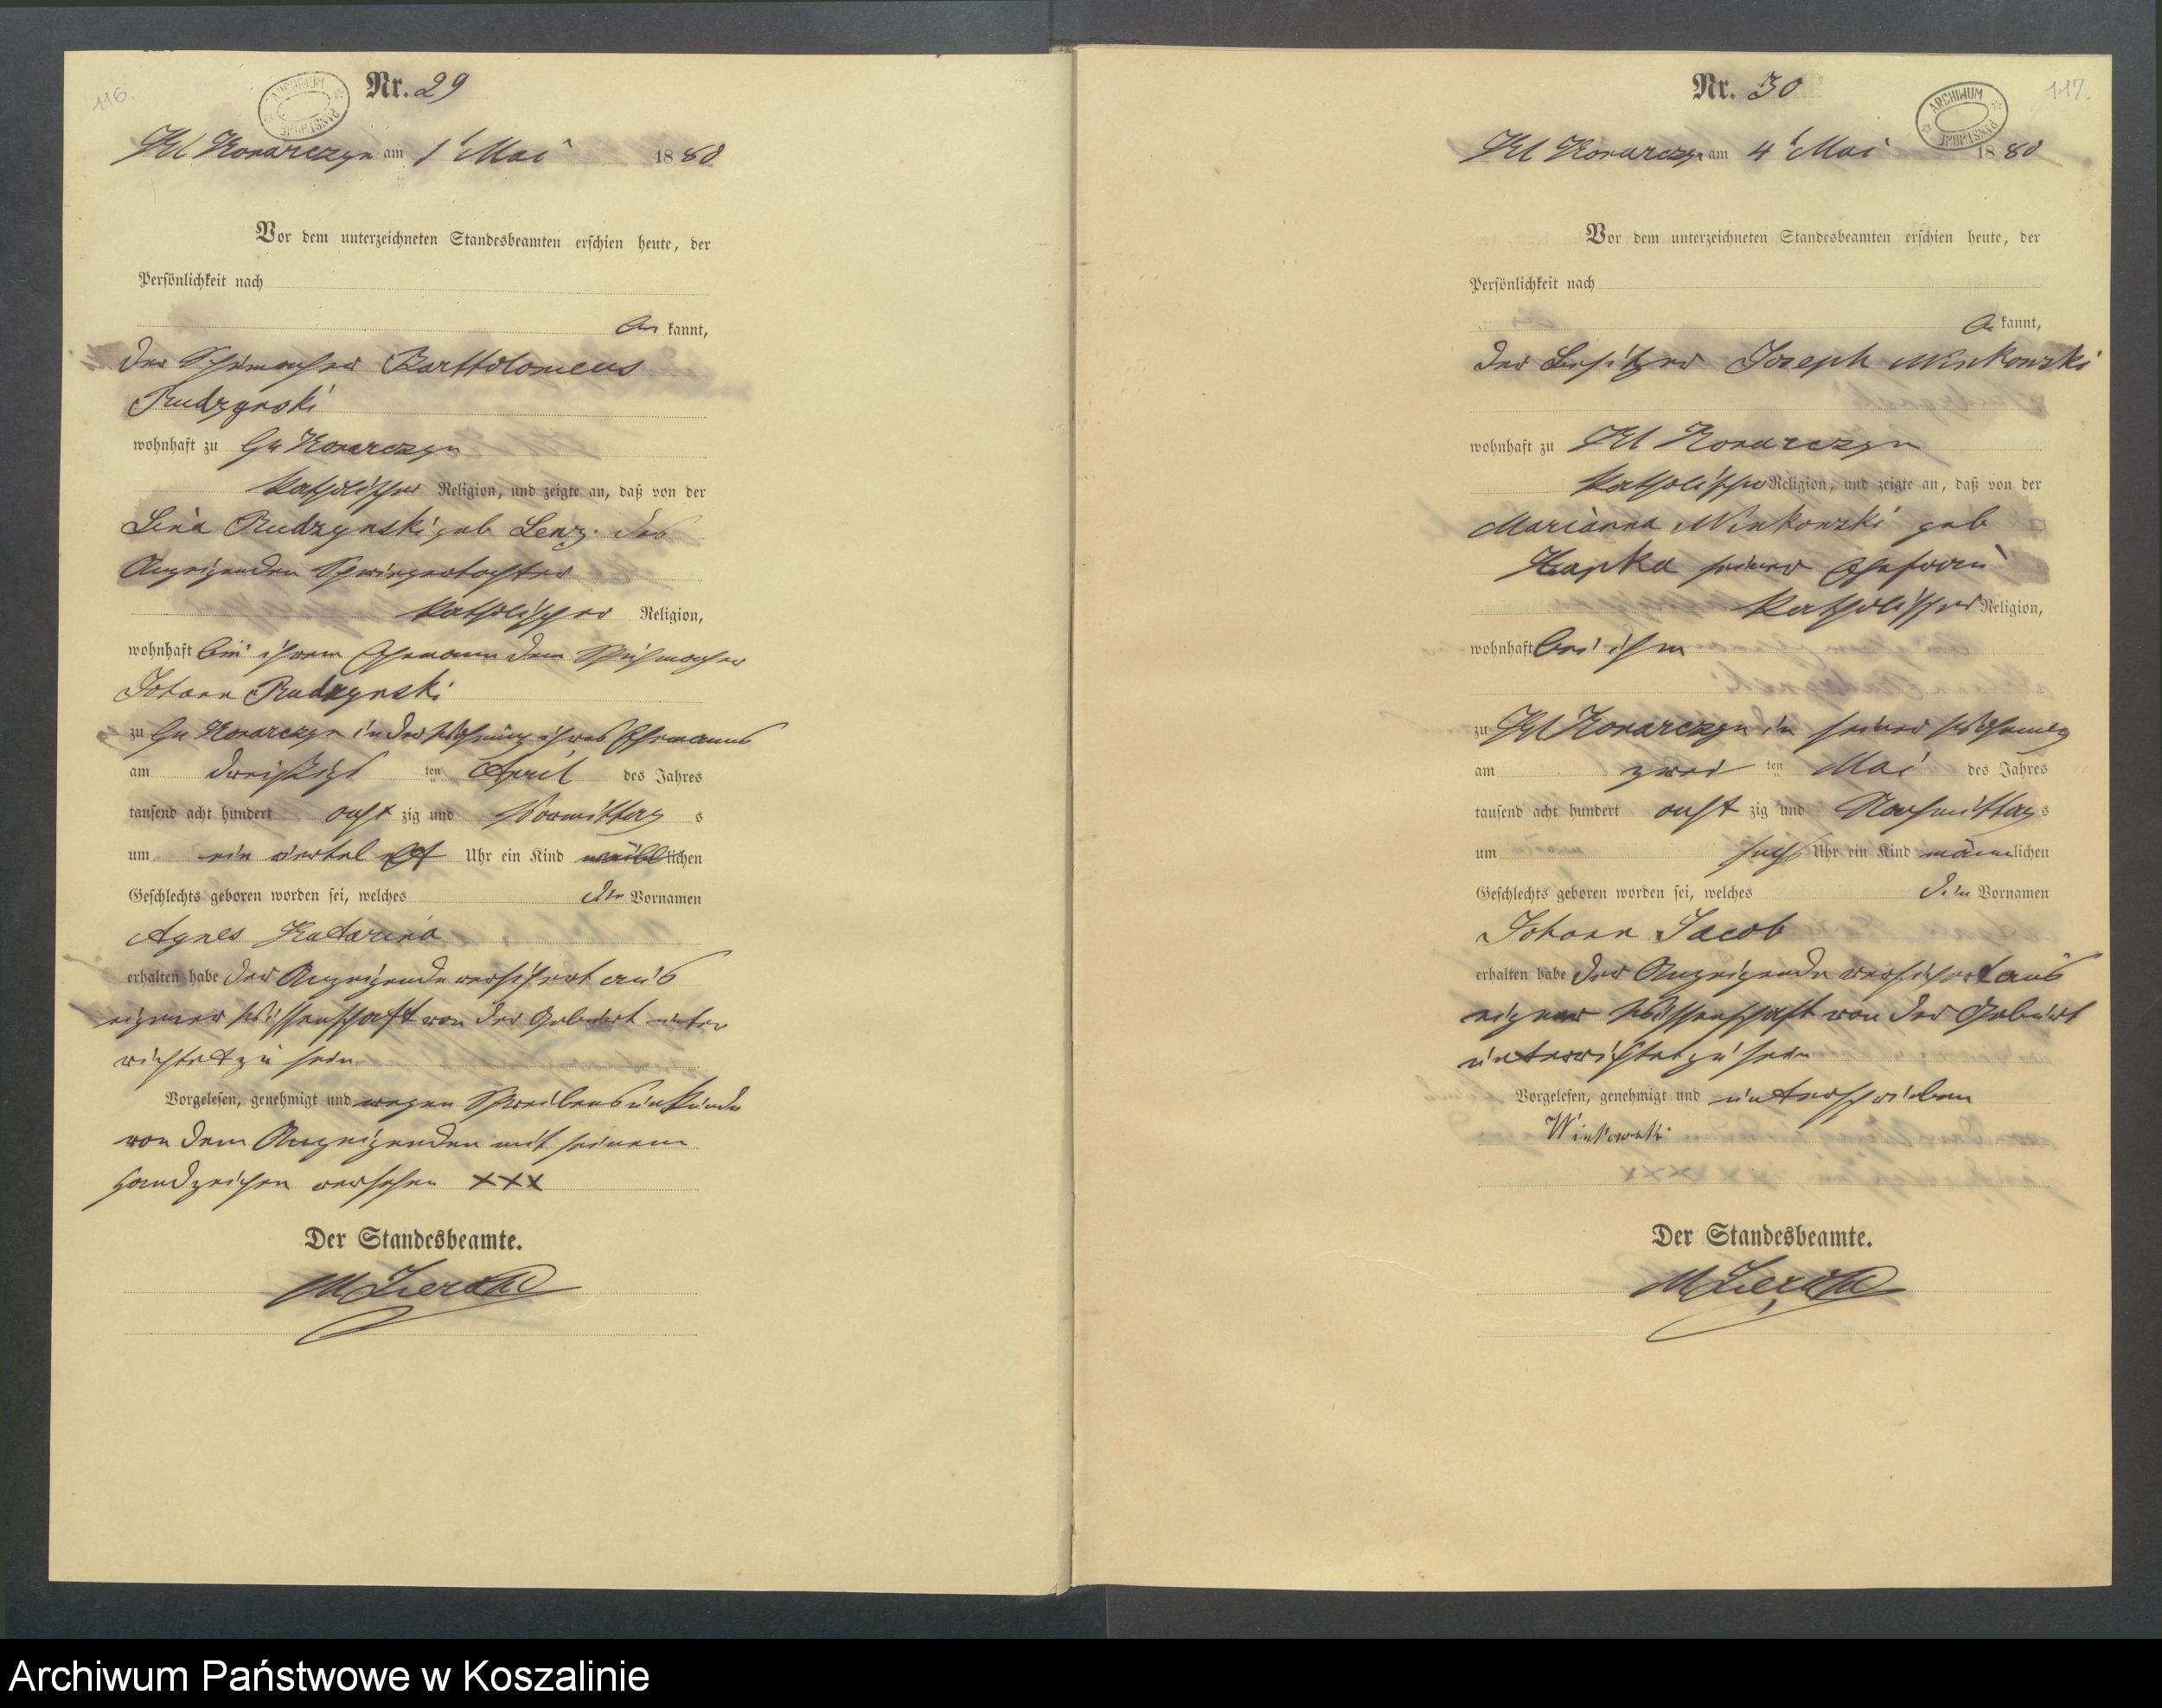 116.
ARCHIWUM PAŃSTWOWE
Nr. 29
Kl Konarczyn am 1 Mai 1880
Vor dem unterzeichneten Standesbeamten erschien heute, der
Persönlichkeit nach
be kannt,
der Schumacher Barttolomeus
Rudzynski
wohnhaft zu Gr Konarczyn
katholischer Religion, und zeigte an, daß von der
Lina Rudzynski geb Lenz. des
Anzeigenden Schwiegertochter
katholischer Religion,
wohnhaft bei ihrem Ehemann dem Schuhmacher
Johann Rudzynski
zu Gr Konarczyn in der Wohnung ihres Ehemanns
am dreißigs ten April des Jahres
tausend acht hundert acht zig und Vormittag s
um ein viertel elf Uhr ein Kind weiblichen
Geschlechts geboren worden sei, welches die Vornamen
Agnes Katarina
erhalten habe der Anzeigende versichert aus
eigener Wissenschaft von der Geburt unter
richtet zu sein
Vorgelesen, genehmigt und wegen Schreibensunkunde
von dem Anzeigenden mit seinem
Handzeichen versehen XXX
Der Standesbeamte.
117.
ARCHIWUM PAŃSTWOWE
Nr. 30
Kl Konarczyn am 4 Mai 1880
Vor dem unterzeichneten Standesbeamten erschien heute, der
Persönlichkeit nach
be kannt,
der Besitzer Joseph Winkowski
wohnhaft zu Kl Konarczyn
katholischer Religion, und zeigte an, daß von der
Marianna Winkowski geb
seiner Ehefrau
katholischer Religion,
wohnhaft bei ihm
zu Kl Konarczyn in seiner Wohnung
am zwei ten Mai des Jahres
tausend acht hundert acht zig und Nachmittag s
um sechs Uhr ein Kind männlichen
Geschlechts geboren worden sei, welches die Vornamen
Johann Jacob
erhalten habe der Anzeigende versichert aus
eigner Wissenschaft von der Geburt
unterrichtet zu sein
Vorgelesen, genehmigt und unterschrieben
Winkowski
Der Standesbeamte.
Archiwum Państwowe w Koszalinie